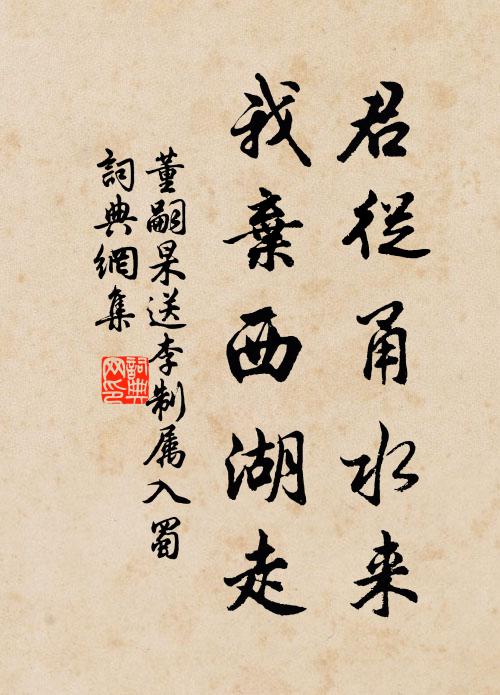 君從甬水来
我棄西湖走
董嗣杲送李制属入蜀
詞典網集
詞典网印